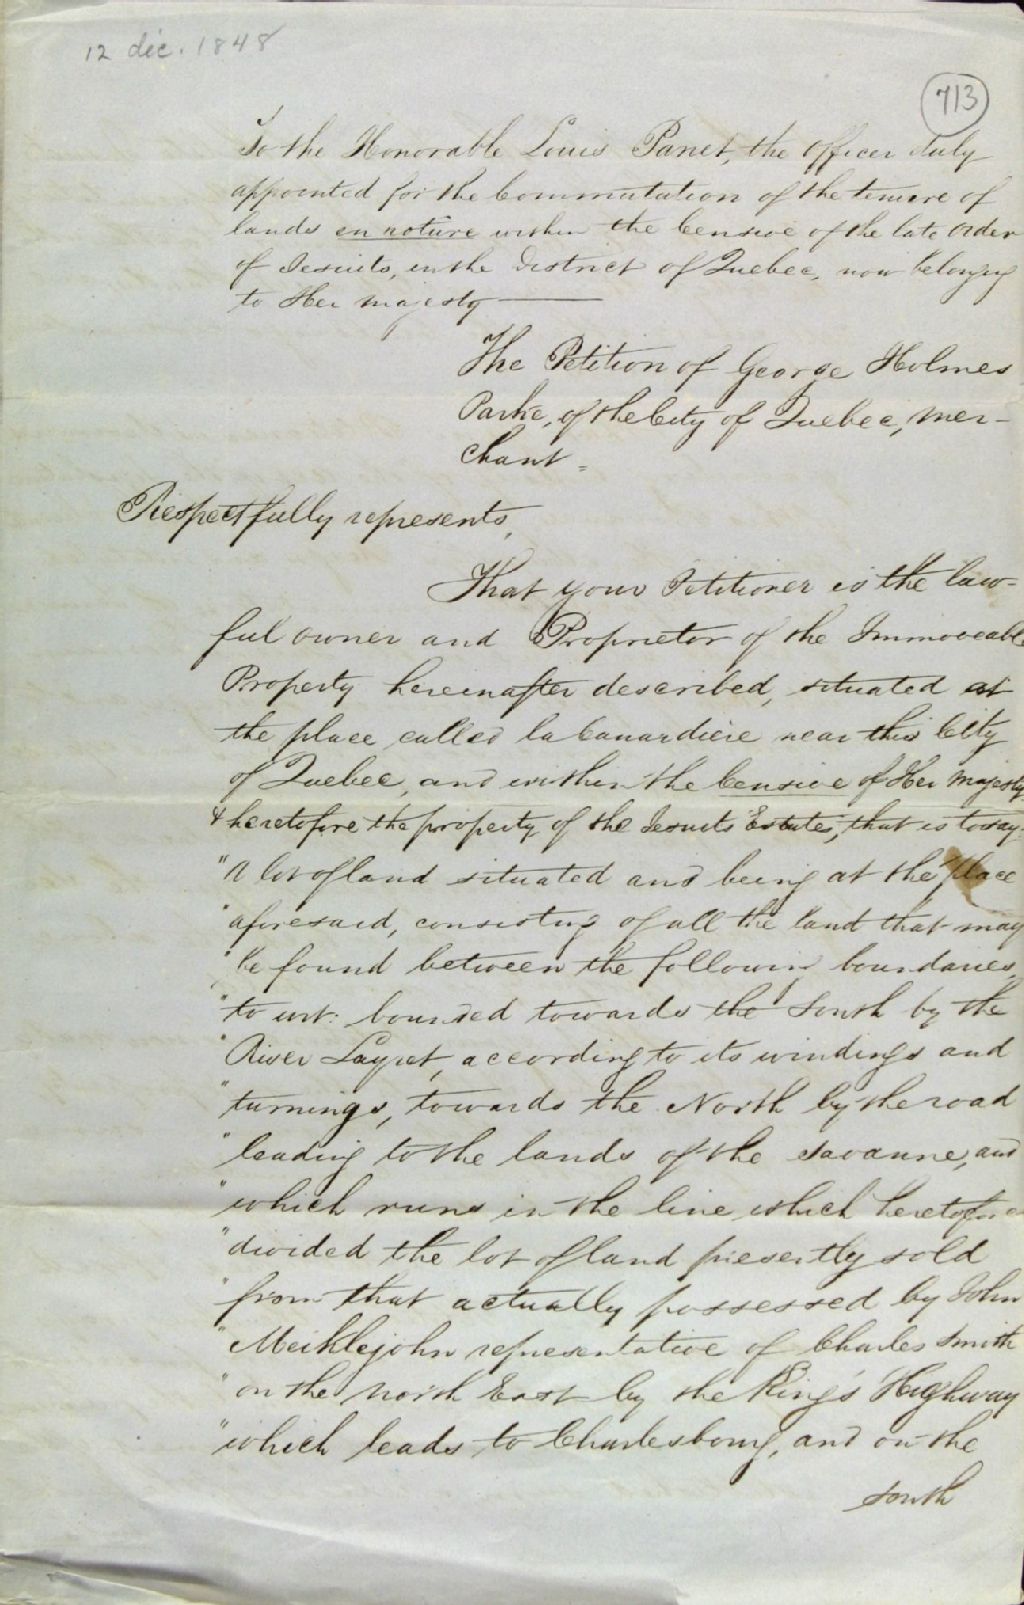 12 déc. 1848
713
To the Honorable Louis Panet, the Officer duly
appointed for the Commutation of the tenure of
lands en roture within the Censive of the late Order
of Jesuits, in the District of Quebec, now belonging
to Her Majesty
The Petition of George Holmes
Parke, of the City of Quebec, Mer-
chant =
Respectfully represents,
That your Petitioner is the law-
ful owner and Proprietor of the Immoveable
Property hereinafter described, situated at
the place called la Canardiere near this City
of Quebec, and within the Censive of Her Majesty
& heretofore the property of the Jesuits Estates, that is to say:
"A lot of land situated and being at the place
"aforesaid, consisting of all the land that may
"be found between the following boundaries,
"to wit: bounded towards the South by the
"River Layret, according to its windings and
"turnings, towards the North by the road
"leading to the lands of the Savanne, and
"which runs in the line which heretofore
"divided the lot of land presently sold
"from that actually possessed by John
"Meiklejohn representative of Charles Smith
"on the North East by the King's Highway
"which leads to Charlesbourg, and on the
South